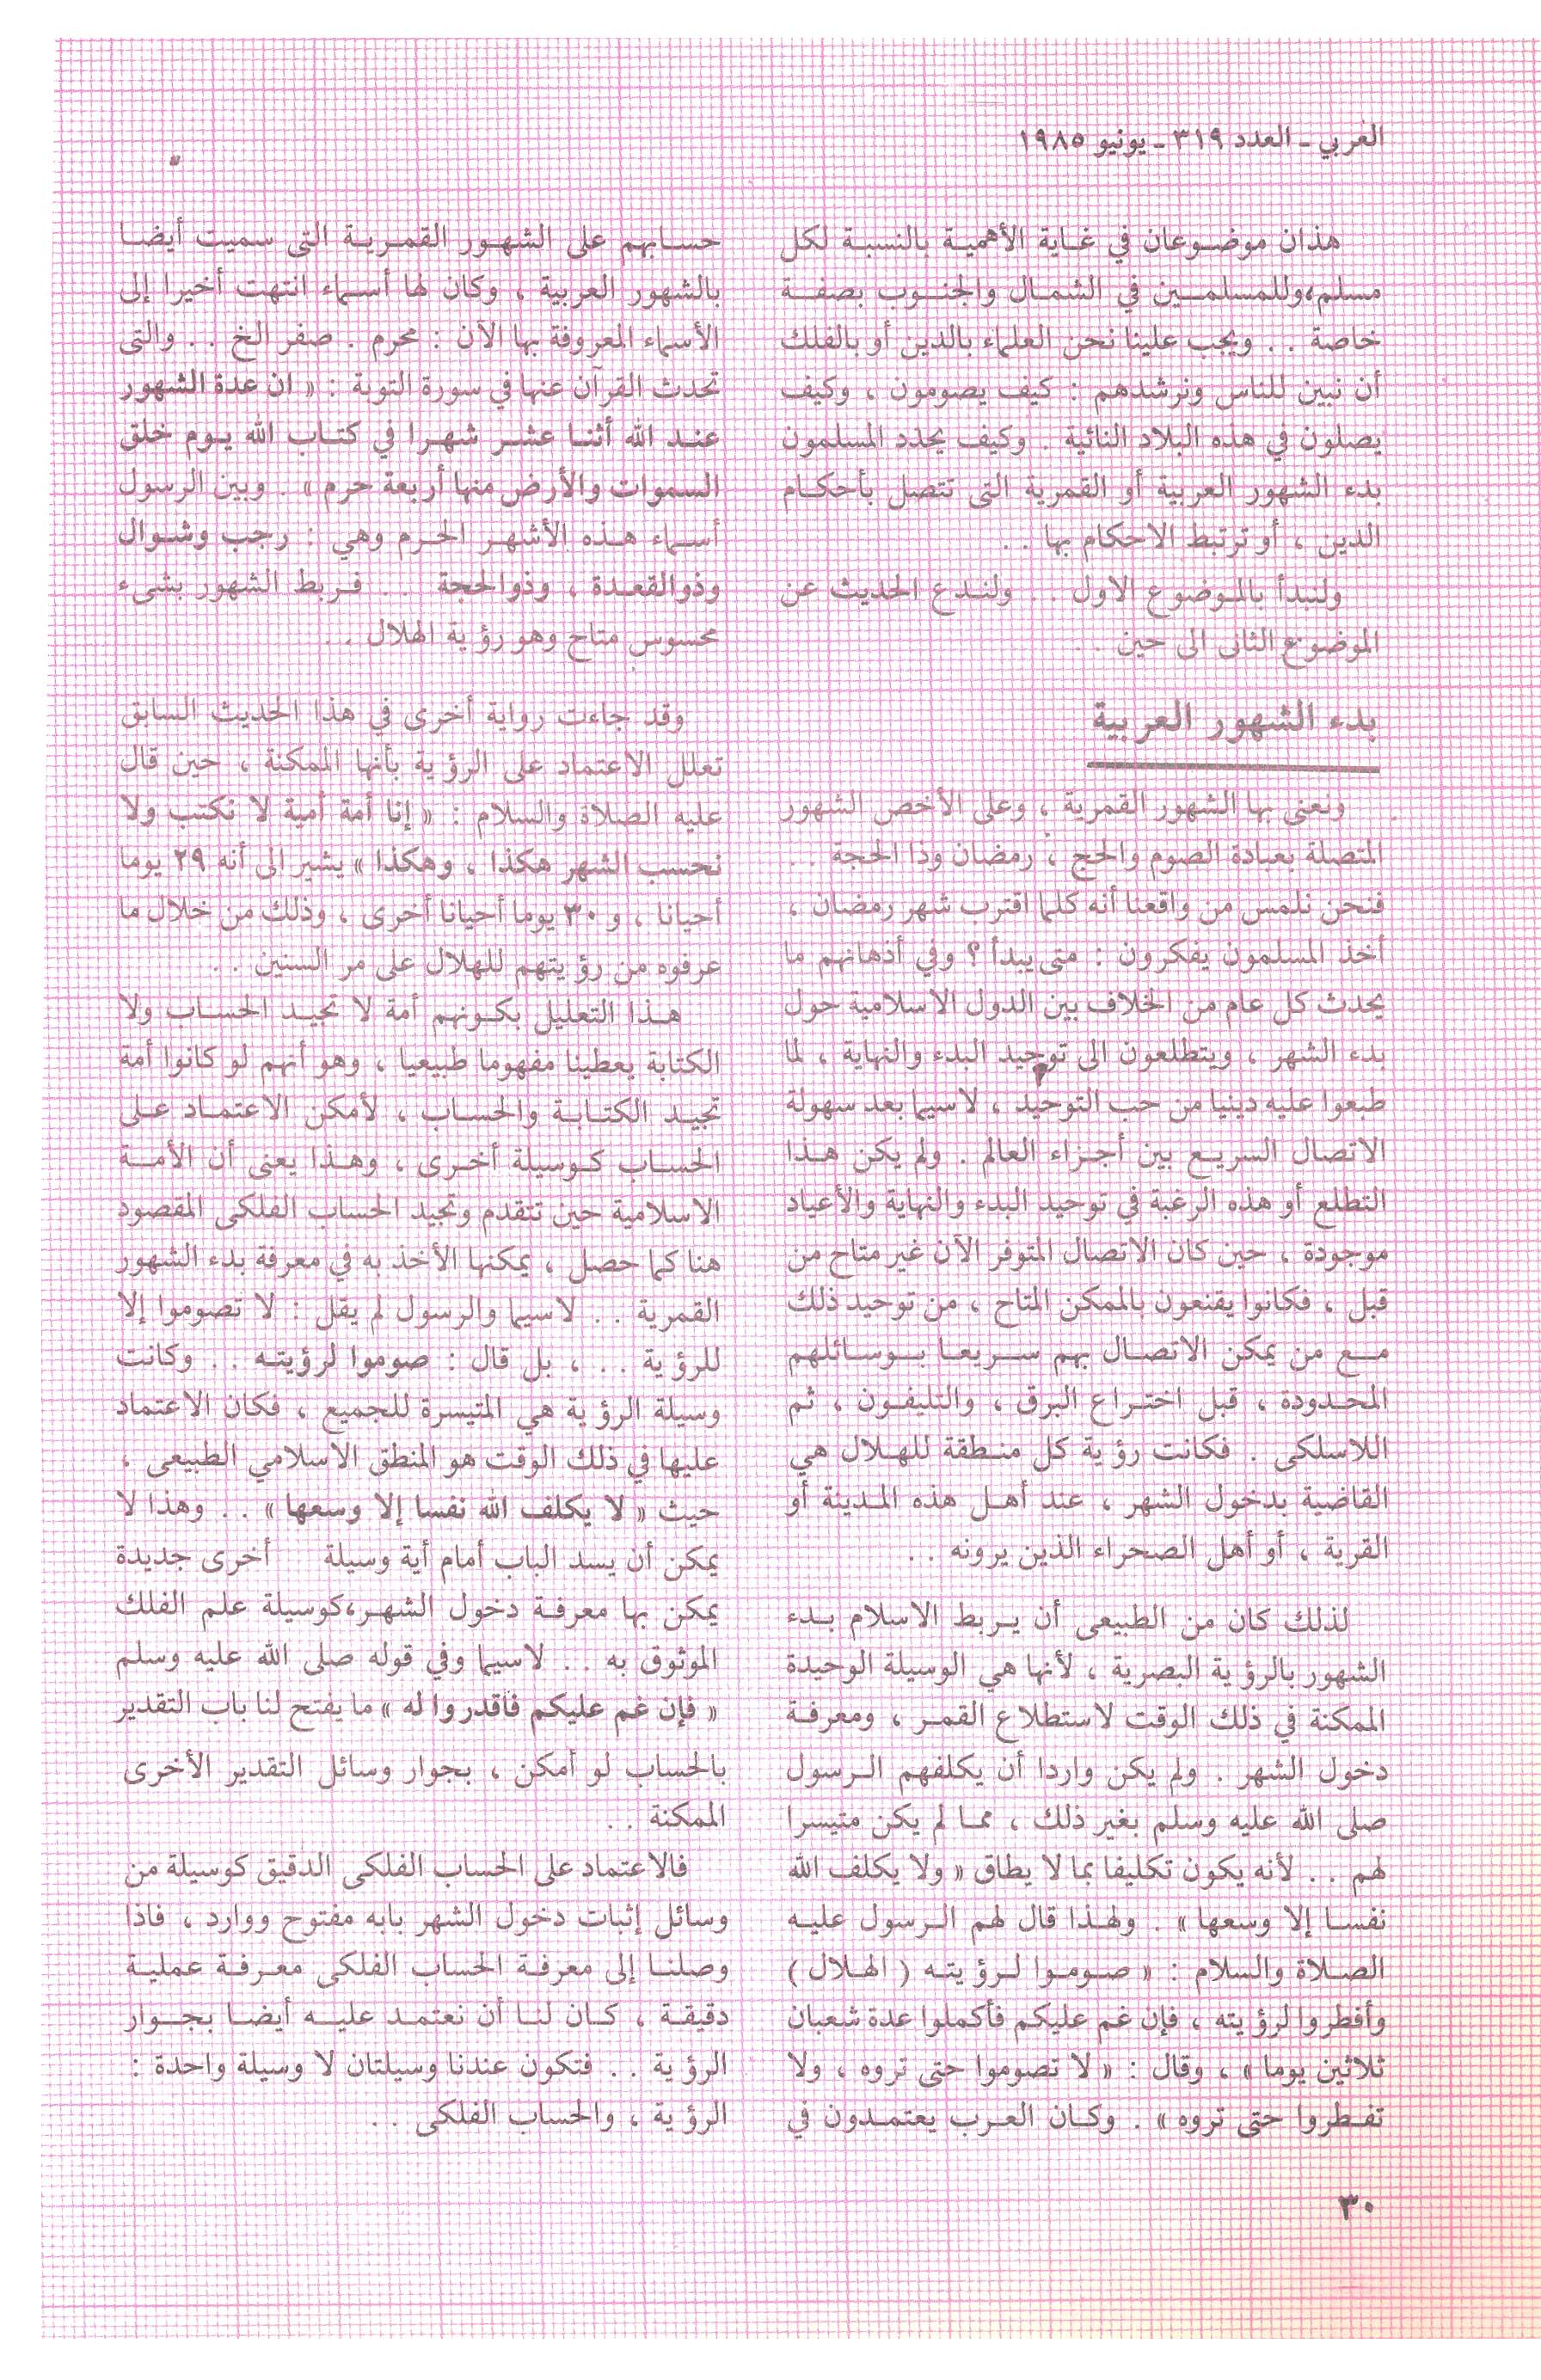 العربي ـ العدد ٣١٩ ـ يونيو ١٩٨٥
هذان موضوعان في غاية الأهمية بالنسبة لكل
مسلم،وللمسلمين في الشمال والجنوب بصفة
خاصة . . ويجب علينا نحن العلماء بالدين أو بالفلك
أن نبين للناس ونرشدهم : كيف يصومون ، وكيف
يصلون في هذه البلاد النائية . وكيف يحدد المسلمون
بدء الشهور العربية أو القمرية التى تتصل بأحكام
الدين ، أو ترتبط الاحكام بها . .
ولنبدأ بالموضوع الاول . . ولندع الحديث عن
الموضوع الثانى الى حين . .
بدء الشهور العربية
ونعنى بها الشهور القمرية ، وعلى الأخص الشهور
المتصلة بعبادة الصوم والحج ، رمضان وذا الحجة . .
فنحن نلمس من واقعنا أنه كلما اقترب شهر رمضان ،
أخذ المسلمون يفكرون : متى يبدأ ؟ وفي أذهانهم ما
يحدث كل عام من الخلاف بين الدول الاسلامية حول
بدء الشهر ، ويتطلعون الى توحيد البدء والنهاية ، لما
طبعوا عليه دينيا من حب التوحيد ، لاسيما بعد سهولة
الاتصال السريع بين أجزاء العالم . ولم يكن هذا
التطلع أو هذه الرغبة في توحيد البدء والنهاية والأعياد
موجودة ، حين كان الاتصال المتوفر الآن غير متاح من
قبل ، فكانوا يقنعون بالممكن المتاح ، من توحيد ذلك
مع من يمكن الاتصال بهم سريعا بوسائلهم
المحدودة ، قبل اختراع البرق ، والتليفون ، ثم
اللاسلكى . فكانت رؤية كل منطقة للهلال هي
القاضية بدخول الشهر ، عند أهل هذه المدينة أو
القرية ، أو أهل الصحراء الذين يرونه . .
لذلك كان من الطبيعى أن يربط الاسلام بدء
الشهور بالرؤية البصرية ، لأنها هي الوسيلة الوحيدة
الممكنة في ذلك الوقت لاستطلاع القمر ، ومعرفة
دخول الشهر . ولم يكن واردا أن يكلفهم الرسول
صلى الله عليه وسلم بغير ذلك ، مما لم يكن متيسرا
لهم . . لأنه يكون تكليفا بما لا يطاق « ولا يكلف الله
نفسا إلا وسعها » . ولهذا قال لهم الرسول عليه
الصلاة والسلام : « صوموا لرؤيته ( الهلال )
وأفطروا لرؤيته ، فإن غم عليكم فأكملوا عدة شعبان
ثلاثين يوما » ، وقال : « لا تصوموا حتى تروه ، ولا
تفطروا حتى تروه » . وكان العرب يعتمدون في
حسابهم على الشهور القمرية التى سميت أيضا
بالشهور العربية ، وكان لها أسماء انتهت أخيرا إلى
الأسماء المعروفة بها الآن : محرم . صفر الخ . . والتى
تحدث القرآن عنها في سورة التوبة : « ان عدة الشهور
عند الله أثنا عشر شهرا في كتاب الله يوم خلق
السموات والأرض منها أربعة حرم » . وبين الرسول
أسماء هذه الأشهر الحرم وهي : رجب وشوال
وذوالقعدة ، وذوالحجة . . فربط الشهور بشىء
محسوس متاح وهو رؤية الهلال . .
وقد جاءت رواية أخرى في هذا الحديث السابق
تعلل الاعتماد على الرؤية بأنها الممكنة ، حين قال
عليه الصلاة والسلام : « إنا أمة أمية لا نكتب ولا
نحسب الشهر هكذا ، وهكذا » يشير الى أنه ٢٩ يوما
أحيانا ، و ٣٠ يوما أحيانا أخرى ، وذلك من خلال ما
عرفوه من رؤيتهم للهلال على مر السنين . .
هذا التعليل بكونهم أمة لا تجيد الحساب ولا
الكتابة يعطينا مفهوما طبيعيا ، وهو أنهم لو كانوا أمة
تجيد الكتابة والحساب ، لأمكن الاعتماد على
الحساب كوسيلة أخرى ، وهذا يعنى أن الأمة
الاسلامية حين تتقدم وتجيد الحساب الفلكى المقصود
هنا كما حصل ، يمكنها الأخذ به في معرفة بدء الشهور
القمرية . . لاسيما والرسول لم يقل : لا تصوموا إلا
للرؤية . . ، بل قال : صوموا لرؤيته . . وكانت
وسيلة الرؤية هي المتيسرة للجميع ، فكان الاعتماد
عليها في ذلك الوقت هو المنطق الاسلامي الطبيعى ،
حيث « لا يكلف الله نفسا إلا وسعها » . . وهذا لا
يمكن أن يسد الباب أمام أية وسيلة أخرى جديدة
يمكن بها معرفة دخول الشهر،كوسيلة علم الفلك
الموثوق به . . لاسيما وفي قوله صلى الله عليه وسلم
« فإن غم عليكم فاقدروا له » ما يفتح لنا باب التقدير
بالحساب لو أمكن ، بجوار وسائل التقدير الأخرى
الممكنة . .
فالاعتماد على الحساب الفلكى الدقيق كوسيلة من
وسائل إثبات دخول الشهر بابه مفتوح ووارد ، فاذا
وصلنا إلى معرفة الحساب الفلكى معرفة عملية
دقيقة ، كان لنا أن نعتمد عليه أيضا بجوار
الرؤية . . فتكون عندنا وسيلتان لا وسيلة واحدة :
الرؤية ، والحساب الفلكى . .
٣٠